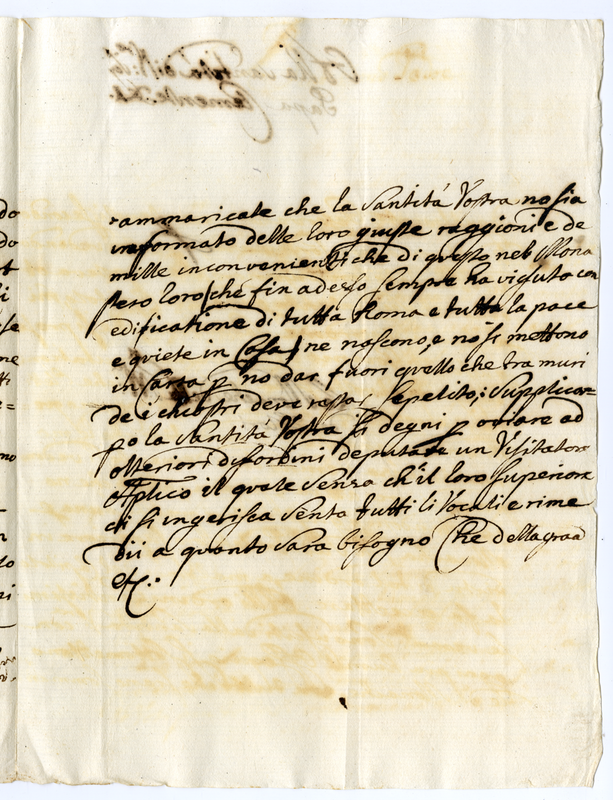 rammaricate che la Santità Vostra no sia
informato delle loro giuste raggioni e de
mille inconvenienti che di questo neb Mona
stero loro (che fin adesso sempre ha vissuto con
edificatione di tutta Roma e tutta la pace
e quiete in Casa) ne nascono, e no si mettono
in Carta p no dar fuori quello che tra muri
de i chiostri deve restar sepelito; supplican=
po la Santità Vostra si degni p oviare ad
ulteriori disordini deputare un Visitatore
Aplico il quale senza ch'il loro superiore
ci si ingerisca senta tutti li Vocali e rime
dii a quanto sarà bisogno Che della graa
etc: